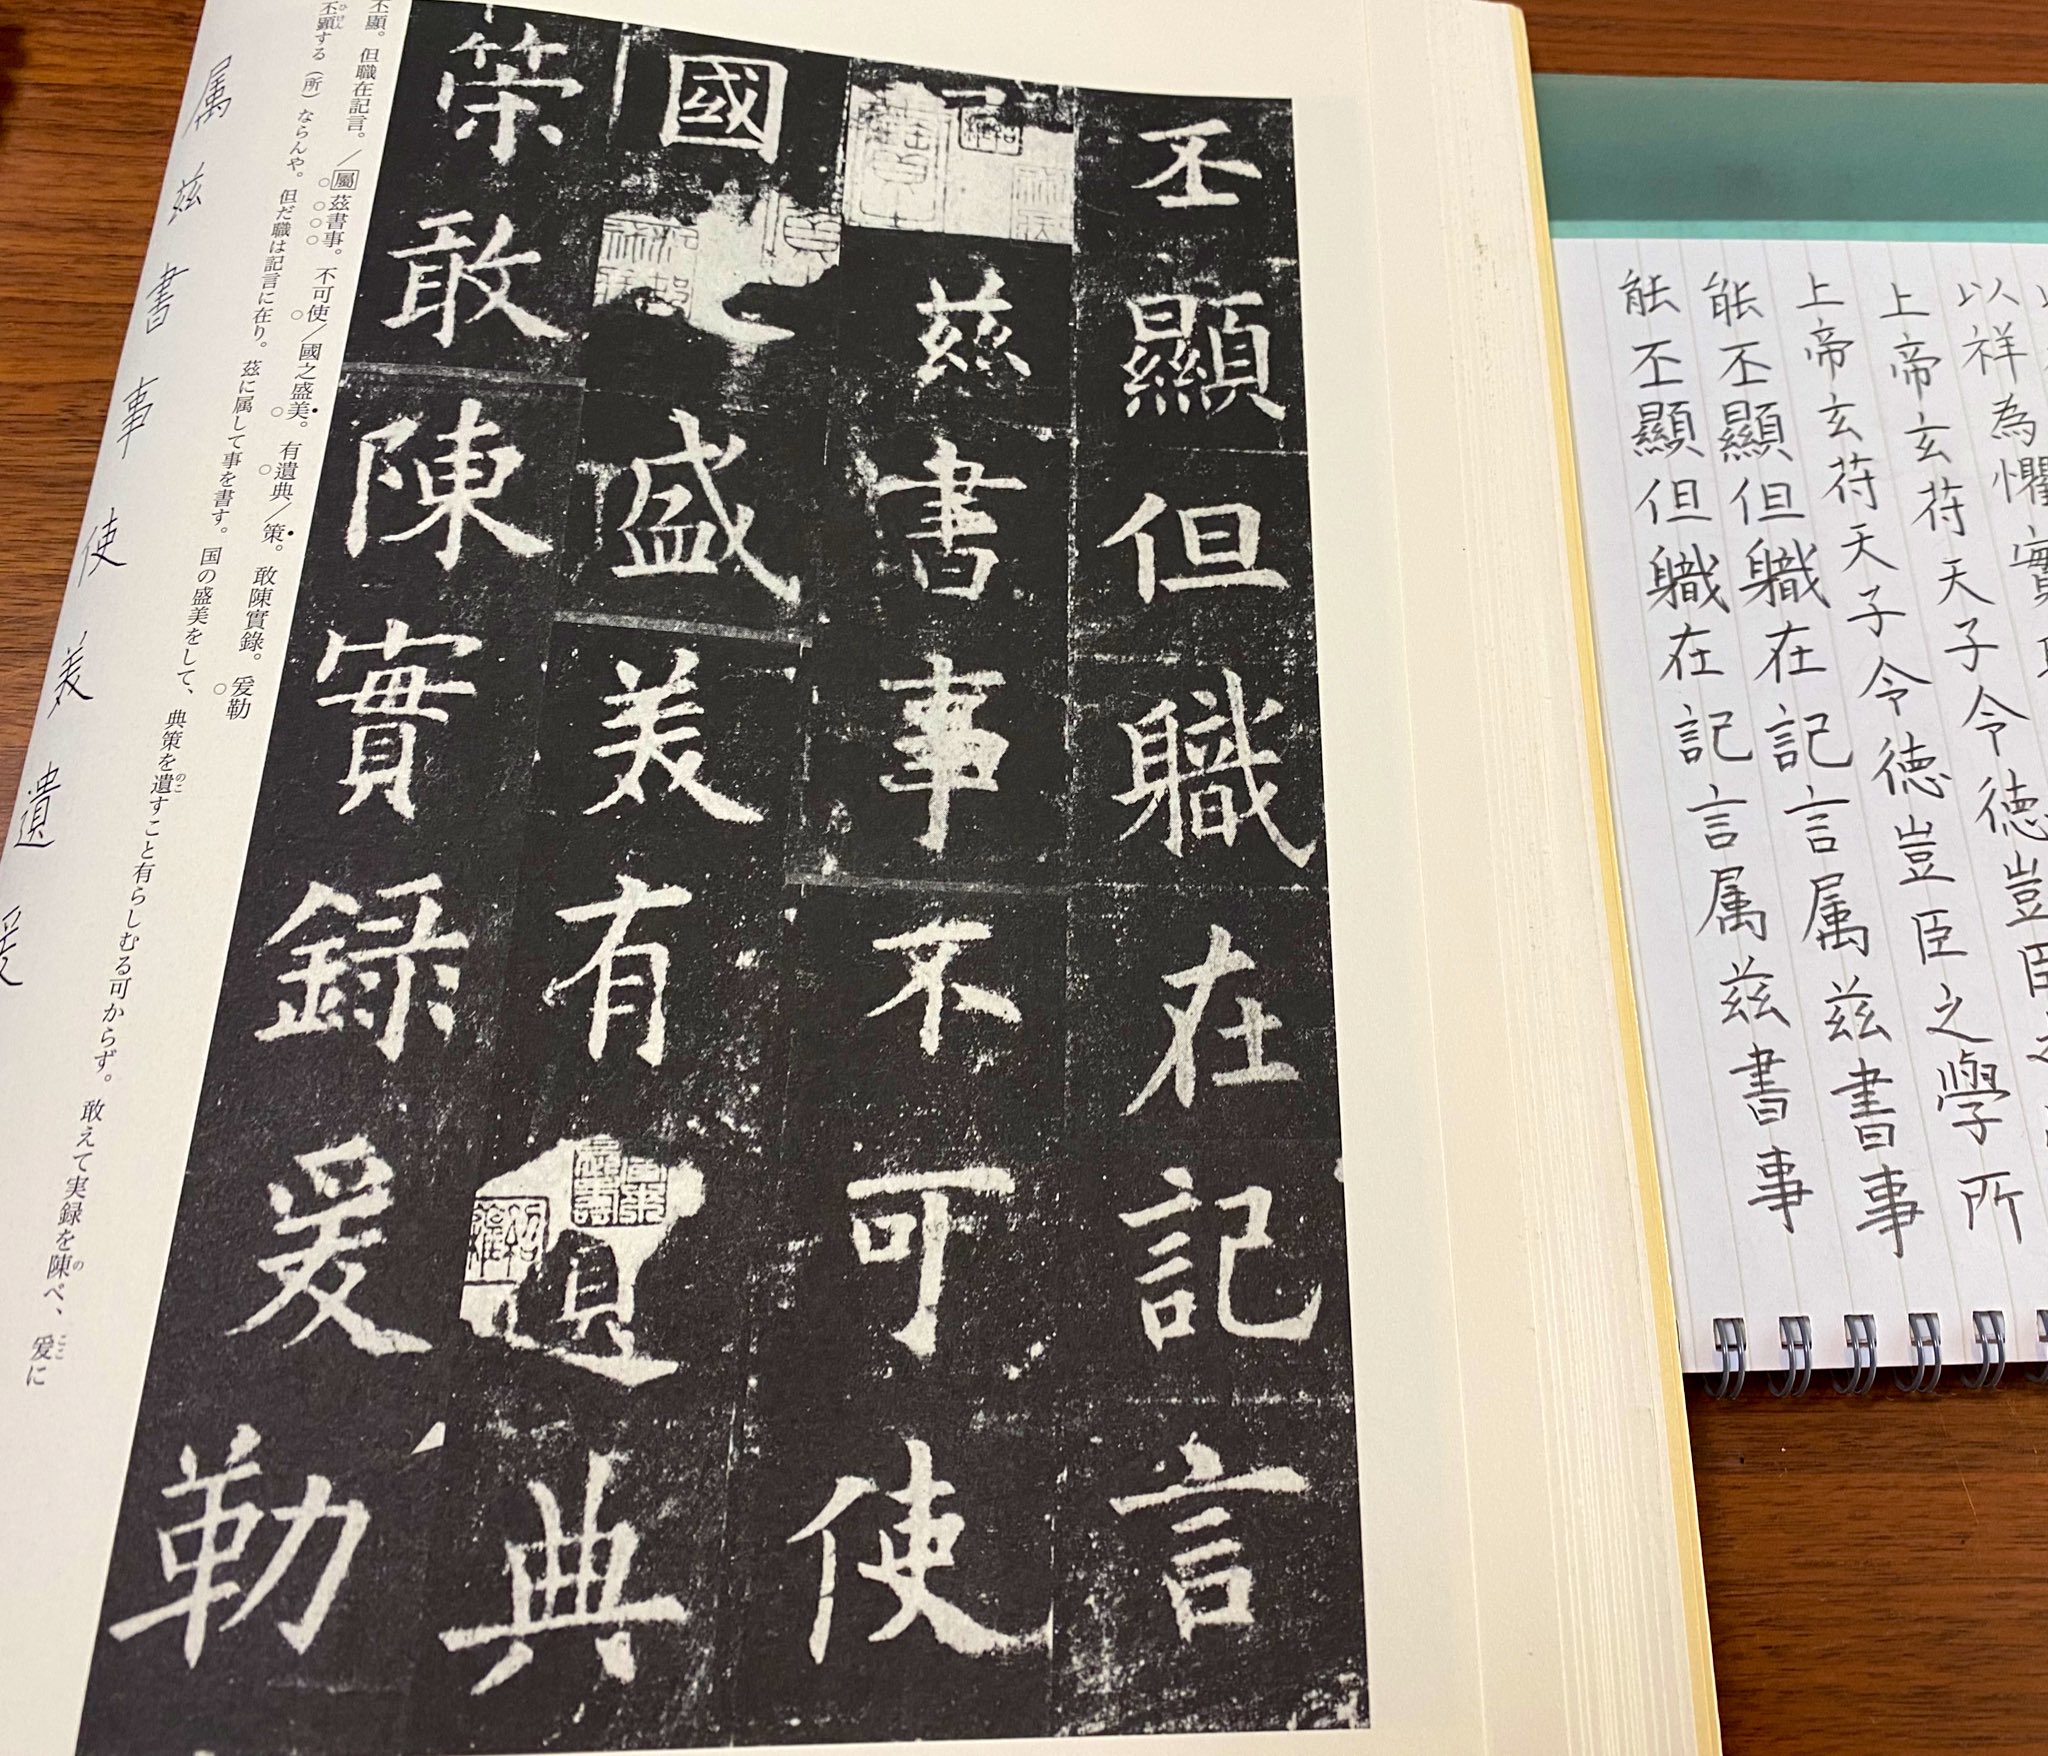 丕顯但職在記言
茲書事不可使
國盛美有遺典
策敢陳實錄爰勒
丕顯。但職在記言。／屬茲書事。不可使／國之盛美。有遺典／策。敢陳實錄。爰勒
丕顕する（所）ならんや。但だ職は記言に在り。茲に属して事を書す。国の盛美をして、典策を遺すこと有らしむる可からず。敢えて実録を陳べ、爰に
属茲書事使美遺爰
以祥為懼實
上帝玄苻天子令徳豈臣
上帝玄苻天子令徳豈臣之學所
能丕顯但職在記言属茲書事
能丕顯但職在記言属茲書事